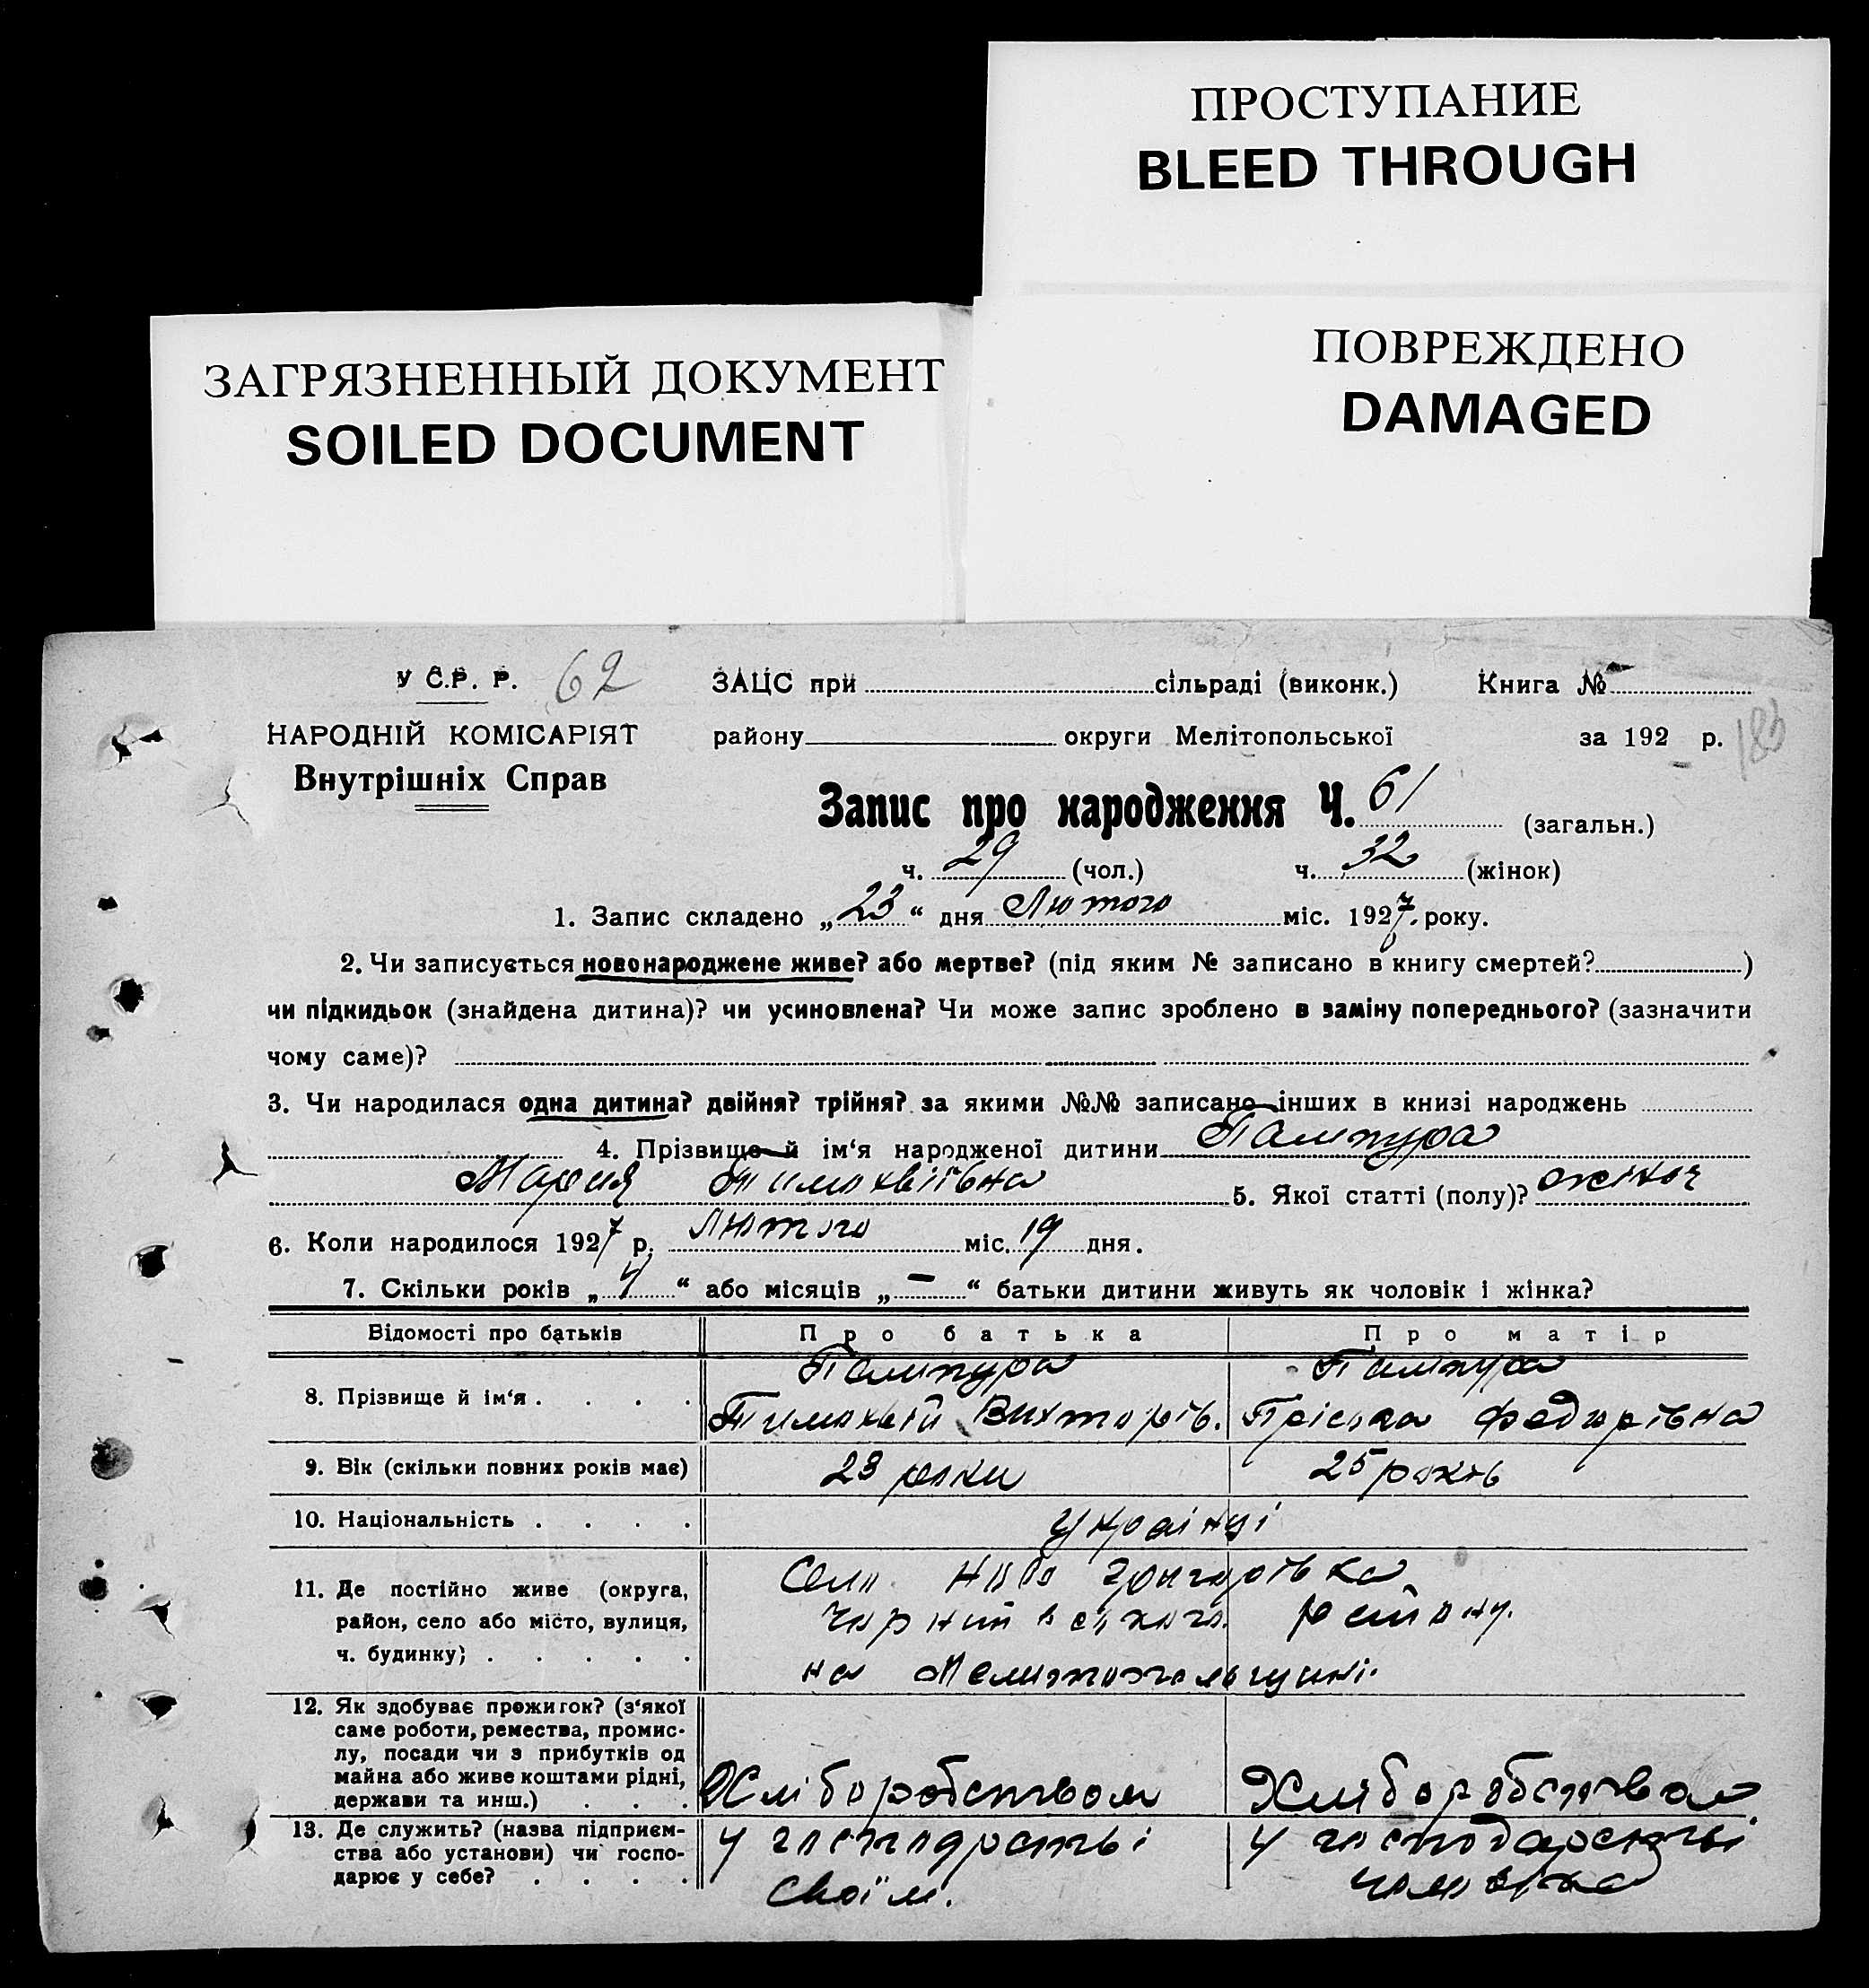 ПРОСТУПАНИЕ
BLEED THROUGH
ПОВРЕЖДЕНО
DAMAGED
ЗАГРЯЗНЕННЫЙ ДОКУМЕНТ
SOILED DOCUMENT
У С.Р. Р. 62 ЗАЦС при сільраді (виконк.) Книга №
НАРОДНІЙ КОМІСАРІЯТ району округи Мелітопольської за 192 р. 183
Внутрішніх Справ
Запис про народження Ч. 61 (загальн.)
ч. 29 (чол.) ч. 32 (жінок)
1. Запис складено „ 23 “ дня Лютого міс. 1927. року.
2. Чи записується новонароджене живе? або мертве? (під яким № записано в книгу смертей? )
чи підкидьок (знайдена дитина)? чи усиновлена? Чи може запис зроблено в заміну попереднього? (зазначити
чому саме)?
3. Чи народилася одна дитина? двійня? трійня? за якими №№ записано інших в книзі народжень
4. Прізвище й ім‘я народженої дитини Пампура
Мария Тимохвіївна 5. Якої статті (полу)? жіноч
6. Коли народилося 1927 р. Лютого міс. 19 дня.
7. Скільки років „ 4 “ або місяців „ — “ батьки дитини живуть як чоловік і жінка?
Відомості про батьків Про батька Про матір
Пампура Пампура
8. Прізвище й ім‘я . . . . Тимохвій Вихторів. Пріська Федорівна
9. Вік (скільки повних років має) 23 роки 25 років
10. Національність . . . . Українці
11. Де постійно живе (округа, Село Ново Григорівка
район, село або місто, вулиця, району.
ч. будинку; . . . . . на Мелитопольщині.
12. Як здобуває прожиток? (з‘якої
саме роботи, ремества, промис-
лу, посади чи з прибутків од
майна або живе коштами рідні,
держави та инш.) . . . Хліборобством Хліборобством
13. Де служить? (назва підприєм- у господрстві у господарстві
ства або установи) чи госпо-
дарює у себе? . . . . своїм. чоловіка